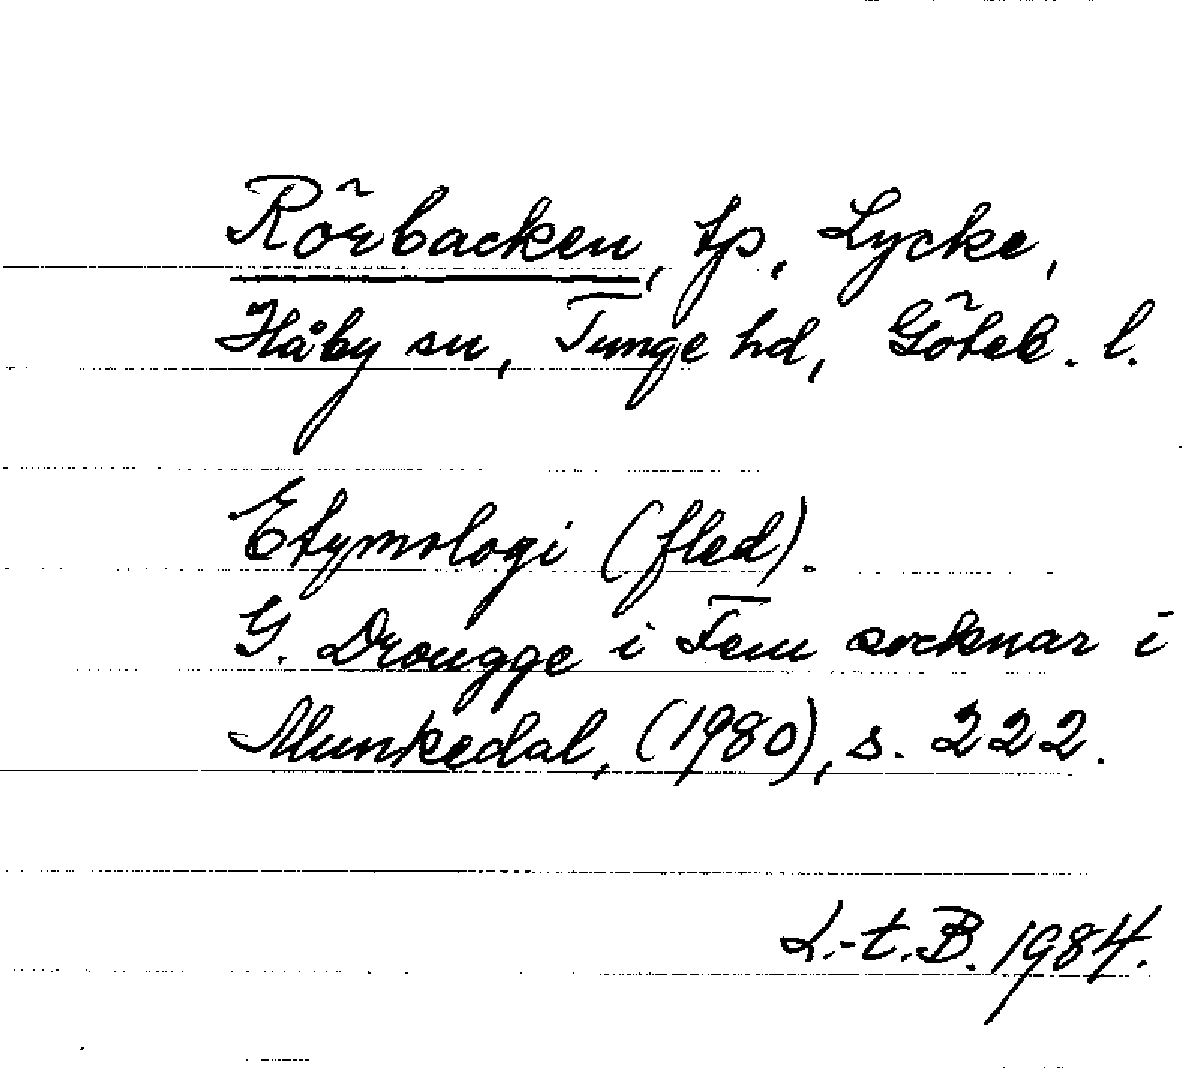 Rörbacken, tp, Lycke,
Håby sn, Tunge hd, Göteb. l.
Etymologi (fled).
G. Drougge i Fem socknar i
Munkedal, (1980), s. 222.
L.-t.B. 1984.